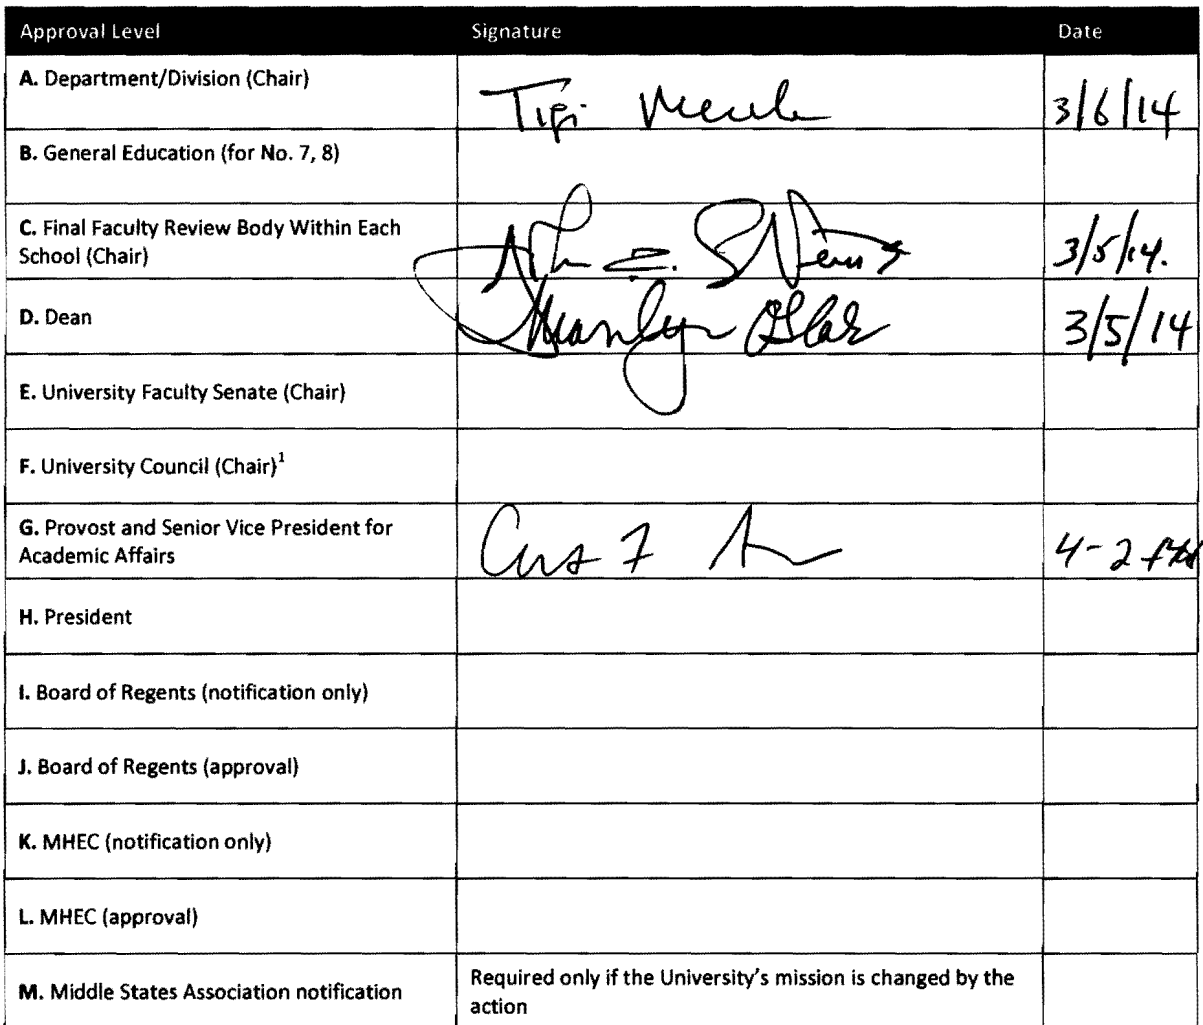 Approval Level Signature Date
A. Department/Division (Chair) 3/6/14
B. General Education (for No. 7, 8)
C. Final Faculty Review Body Within Each
School (Chair) 3/5/14.
D. Dean 3/5/14
E. University Faculty Senate (Chair)
F. University Council (Chair)¹
G. Provost and Senior Vice President for
Academic Affairs 4-2
H. President
I. Board of Regents (notification only)
J. Board of Regents (approval)
K. MHEC (notification only)
L. MHEC (approval)
M. Middle States Association notification Required only if the University's mission is changed by the
action